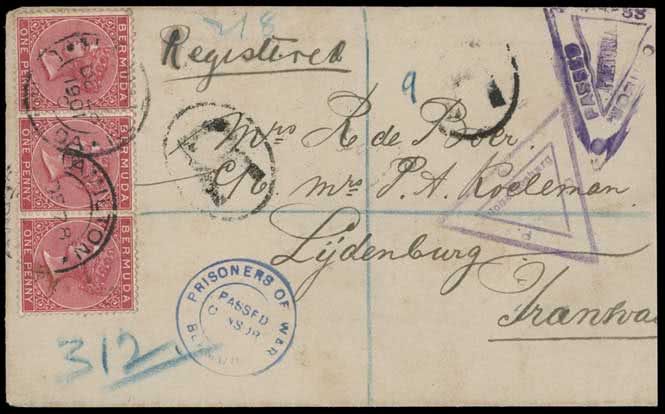 218
Registered
9
Mrs R de Boer.
C/o. Mrs P. A. Koeleman.
Lijdenburg
Transvaa
312.
BERMUDA
ONE PENNY
BERMUDA
ONE PENNY
BERMUDA
ONE PENNY
HAMILTON
PRISONERS OF WAR
PASSED
PASSED
PRETORIA
Johannesburg
R